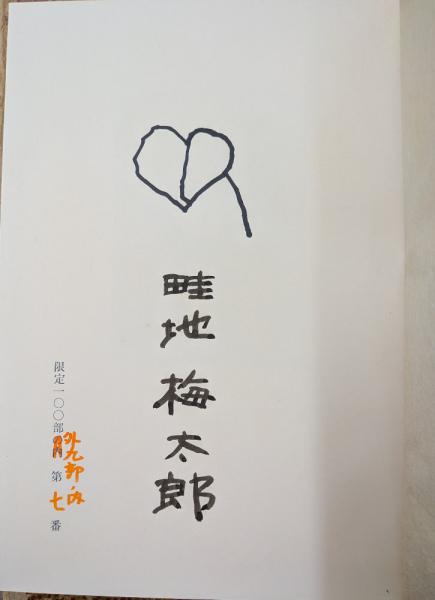 畦地 梅太郎
限定一〇〇部外九部ノ内 第七番